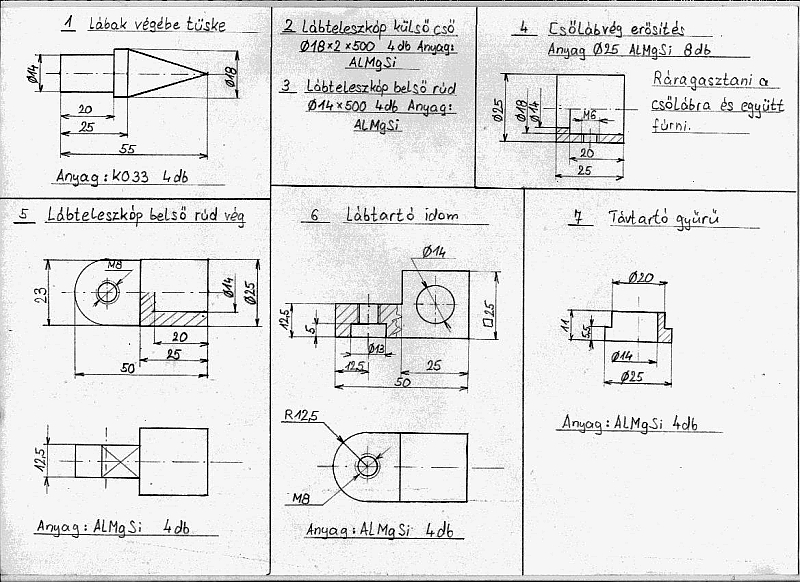 1 Lábak végébe tüske
Ø14
Ø18
20
25
55
Anyag: KO33 4db
2 Lábteleszkóp külső cső
Ø18×2×500 4db Anyag:
ALMgSi
3 Lábteleszkóp belső rúd
Ø14×500 4db Anyag:
ALMgSi
4 Csőlábvég erősítés
Anyag Ø25 ALMgSi 8db
Ráragasztani a
csőlábra és együtt
fúrni.
Ø25
Ø18
Ø14
M6
20
25
5 Lábteleszkóp belső rúd vég
M8
23
Ø14
Ø25
20
25
50
12,5
Anyag: ALMgSi 4db
6 Lábtartó idom
Ø14
12,5
5
□25
Ø13
12,5
25
50
R12,5
M8
Anyag: ALMgSi 4db
7 Távtartó gyűrű
Ø20
11
5,5
Ø14
Ø25
Anyag: ALMgSi 4db